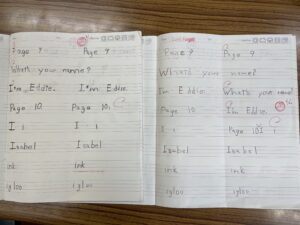 Page 9 Page 9
What's your name?
I'm Eddie. I'm Eddie.
Page 10 Page 10
I i I i
Isabel Isabel
ink ink
igloo igloo
Page 9
What's your name?
I'm Eddie. What's your name?
Page 10 I'm Eddie.
I i Page 10 I i
Isabel Isabel
ink ink
igloo igloo